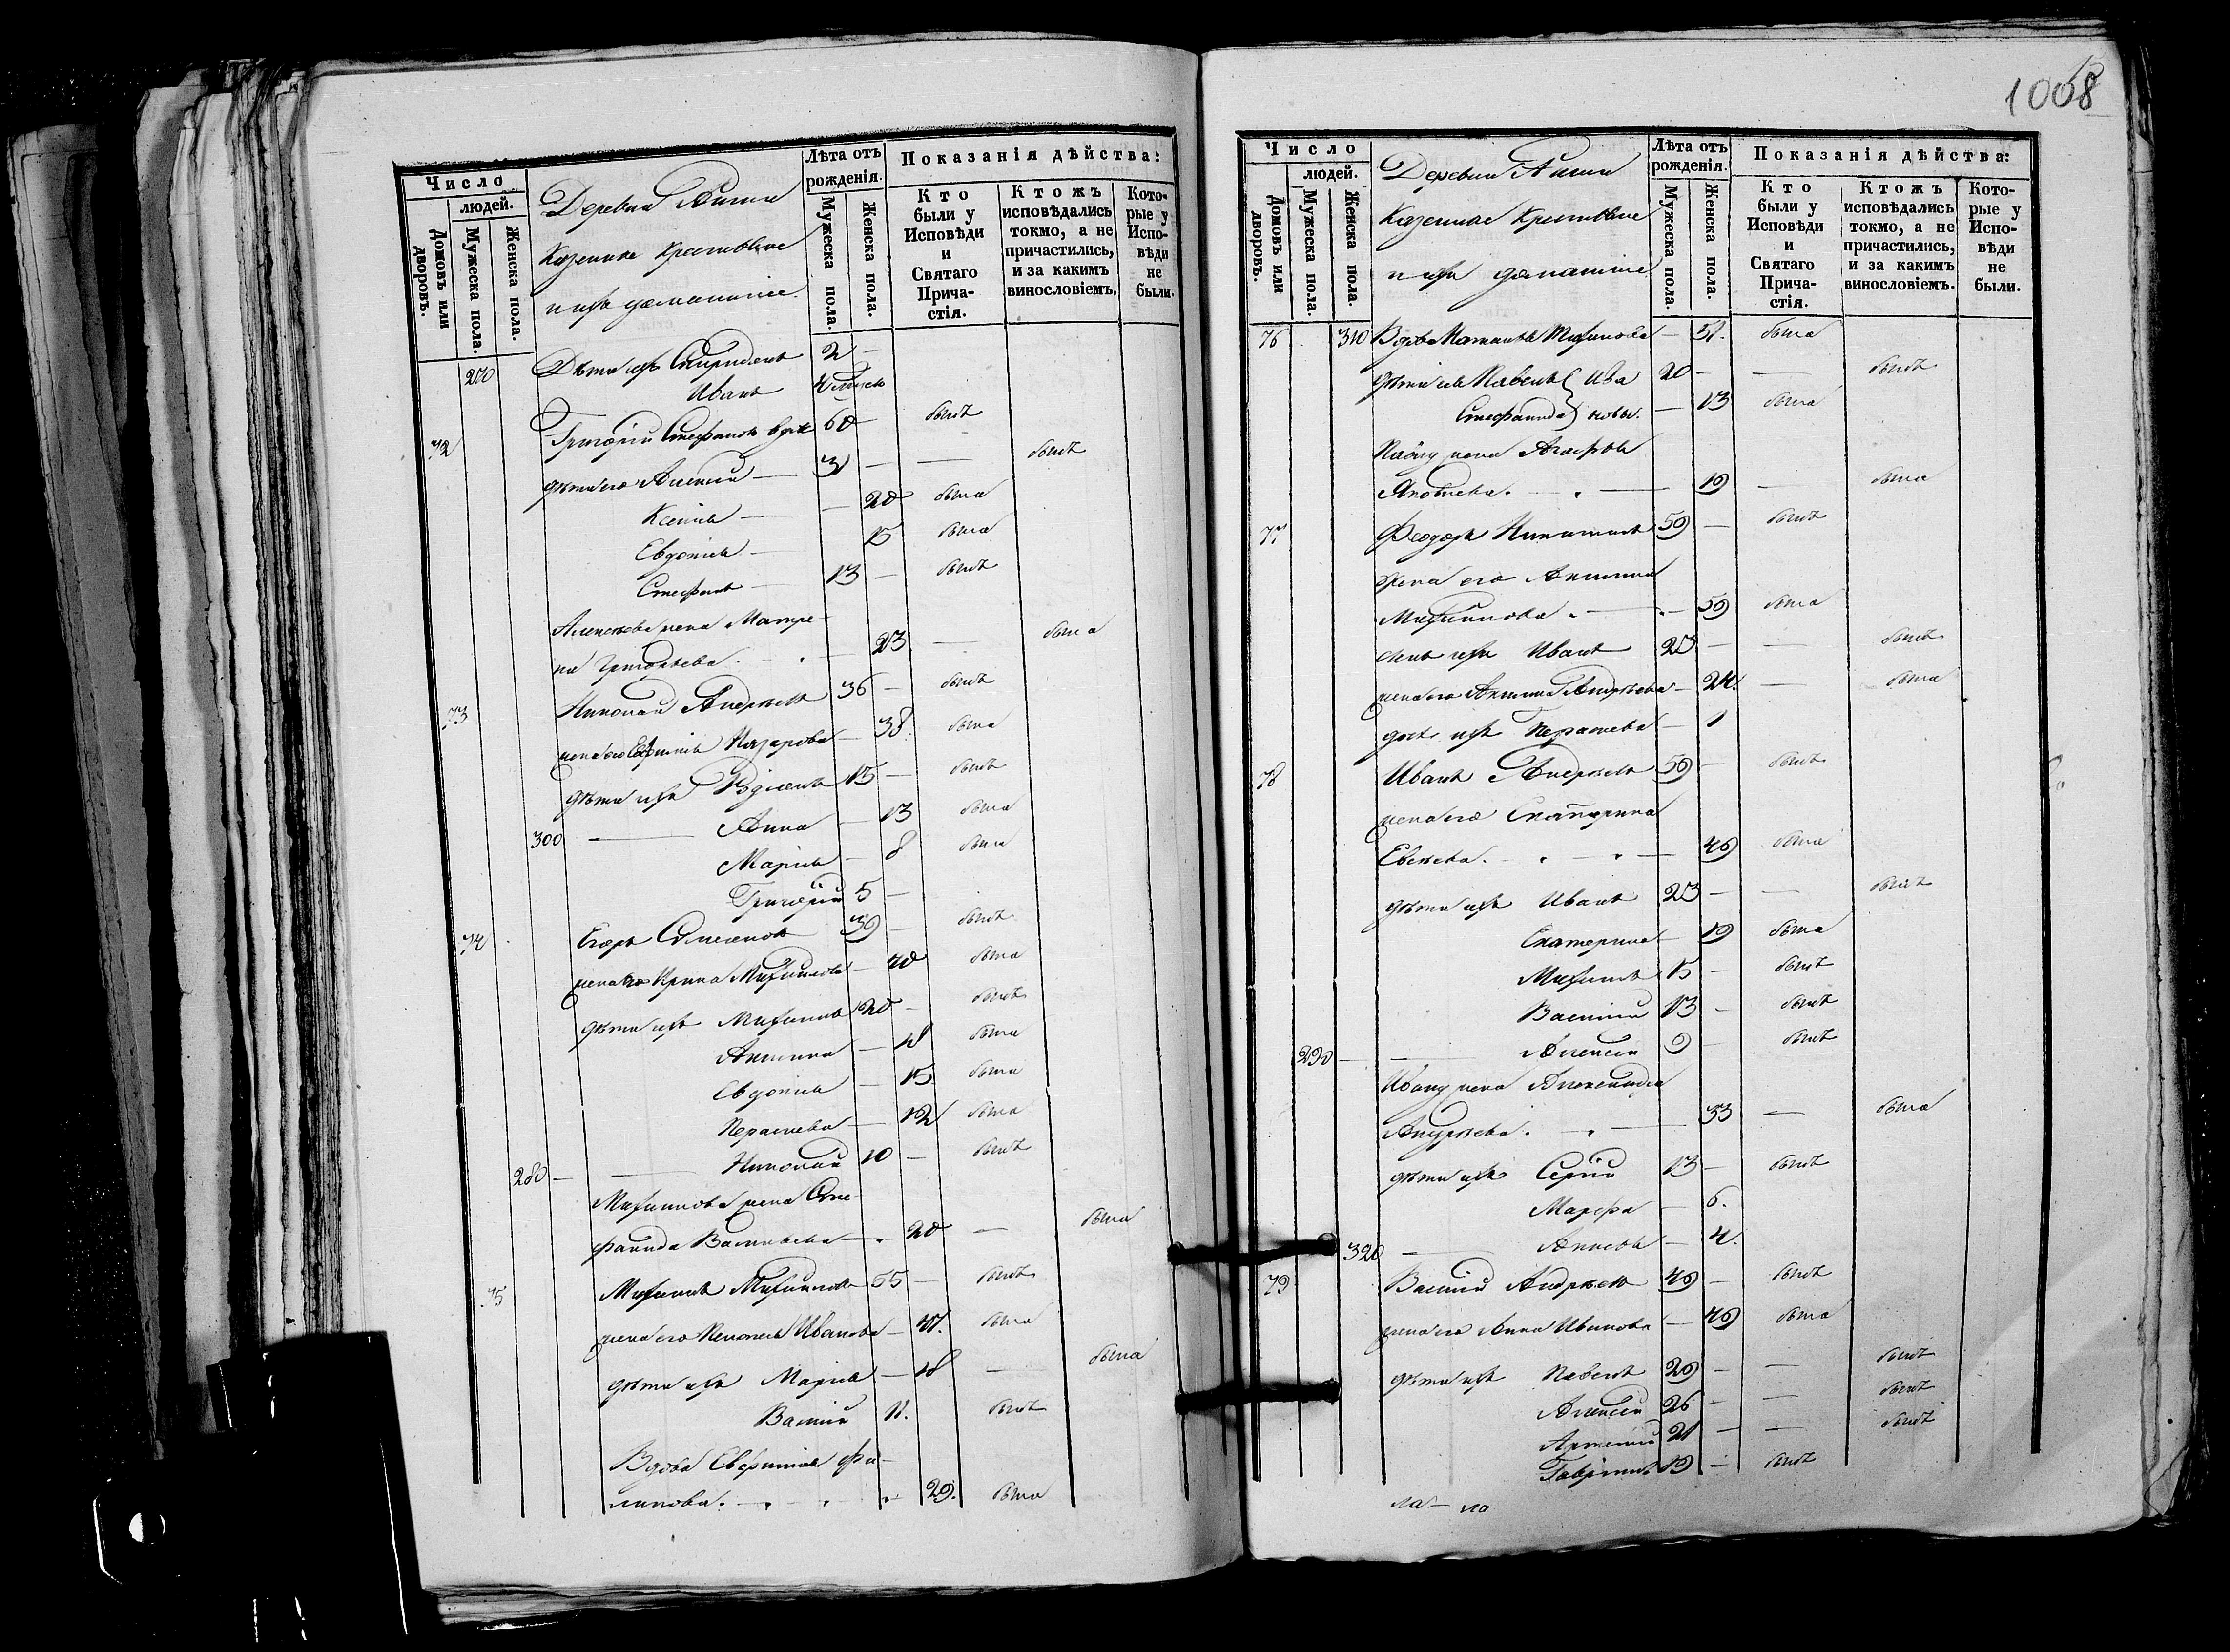 1008
Число
людей.
Домовъ или дворовъ.
Мужеска пола.
Женска пола.
Деревня
Казенные Крестьяне
и ихъ домашніе.
Лѣта отъ рожденія.
Мужеска пола.
Женска пола.
Показанія дѣйства:
Кто были у Исповѣди и Святаго Причастія.
Ктожъ исповѣдались токмо, а не причастились, и за какимъ винословіемъ.
Которые у Исповѣди не были.
270 Дѣти ихъ Спиридонъ 2 —
Иванъ
72 Григорій Стефановъ вдовъ 60 — былъ
дѣти его Алексѣй — 31 — — былъ
Ксенія — — 20 была
Евдокія — 15 была
Стефанъ — 13 — былъ
Алексѣева жена Матре-
на Григорьева. — 23 — была
73 Николай Андреевъ 36 — былъ
жена его Назарова — 38. была
дѣти ихъ Родіонъ 15 — былъ
300 — Анна — 13 была
Марія — 8 была
Григорій 5 —
74 Егоръ 39 — былъ
жена его Ирина Михайлова — 40 была
дѣти ихъ Михаилъ 20 — былъ
Акилина — 18 была
Евдокія — 15 была
Параскева — 12 была
280 — — Николай 10 — былъ
Михайлова жена Сте-
фанида Васильева — 20 — была
75 Михаилъ Михайловъ 55 — былъ
жена его Пелагея Иванова — 47. была
дѣти ихъ Марія — 18 — была
Василій 11. былъ
Вдова Евфимія Фи-
липова. — 29. была
Число
людей.
Домовъ или дворовъ.
Мужеска пола.
Женска пола.
Деревня
Казенные Крестьяне
и ихъ домашніе
Лѣта отъ рожденія.
Мужеска пола.
Женска пола.
Показанія дѣйства:
Кто были у Исповѣди и Святаго Причастія.
Ктожъ исповѣдались токмо, а не причастились, и за какимъ винословіемъ.
Которые у Исповѣди не были.
76 310 Вдова — 51. была
дѣти ея Павелъ } Ива 20 — — былъ
Стефанида } новы. — 13 была
Павлу жена Агафья
Яковлева. — 19 — была
77 Феодоръ Никитинъ 59 — былъ
жена его Акилина
Михайлова. — 59 была
сынъ ихъ Иванъ — — былъ
жена его Акилина Андреева — 24. — была
дочь ихъ Параскева — 1
78 Иванъ Андреевъ 59 — былъ
жена его Екатерина
— 49 была
дѣти ихъ Иванъ 23 — — былъ
Екатерина — 19 была
Михаилъ 15 — былъ
Василій 13 — былъ
290 — — Алексѣй 9 — былъ
Ивану жена Александра
Андреева. — 33 — была
дѣти ихъ Сергій 13 — былъ
Марфа — 6.
320 — Анисья — 4.
79 Василій Андреевъ 49 — былъ
жена его Анна Иванова — 49 была
дѣти ихъ Павелъ 29 — — былъ
Алексѣй 26 — — былъ
Артемій 21 — — былъ
Гавріилъ 19 — былъ